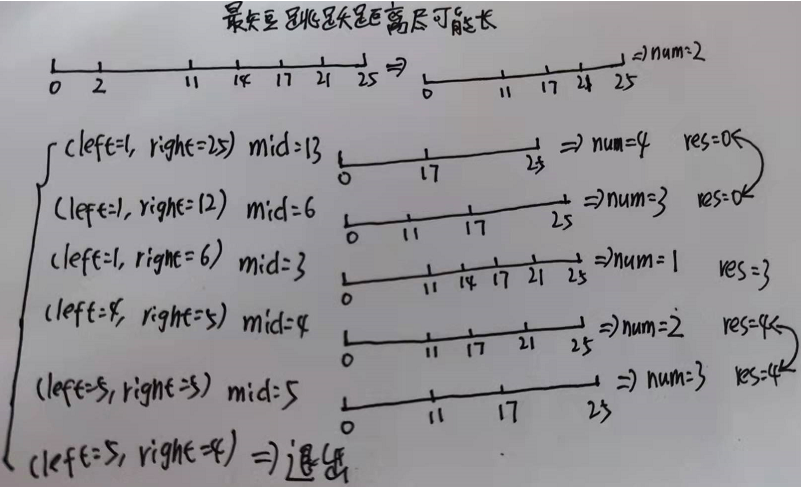 最短跳跃距离尽可能长
0 2 11 14 17 21 25 ⇒ 0 11 17 21 25 ⇒ num=2
(left=1, right=25) mid=13 0 17 25 ⇒ num=4 res=0
(left=1, right=12) mid=6 0 11 17 25 ⇒ num=3 res=0
(left=1, right=6) mid=3 0 11 14 17 21 25 ⇒ num=1 res=3
(left=4, right=5) mid=4 0 11 17 21 25 ⇒ num=2 res=4
(left=5, right=5) mid=5 0 11 17 25 ⇒ num=3 res=4
(left=5, right=4) ⇒ 退出